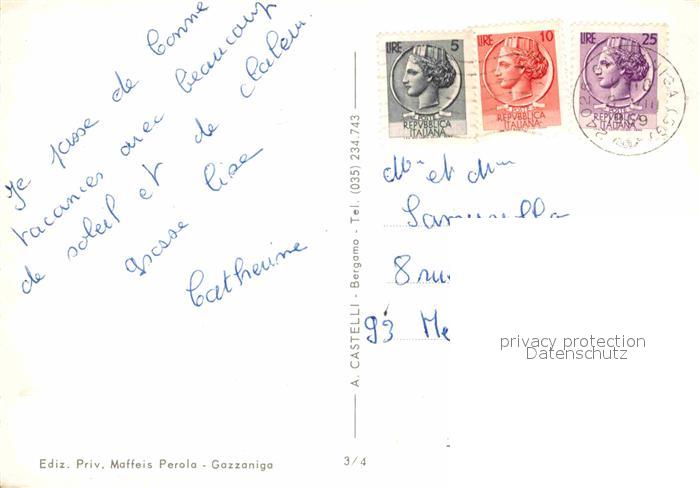 Je passe de bonne
vacances avec beaucoup
de soleil et de chaleur.
grosse bise
Catherine
LIRE 5
POSTE
REPVBBLICA
ITALIANA
LIRE 10
POSTE
REPVBBLICA
ITALIANA
LIRE 25
A. CASTELLI - Bergamo - Tel. (035) 234.743
et
8 ru
93 Me
privacy protection
Datenschutz
Ediz. Priv. Maffeis Perola - Gazzaniga
3/4